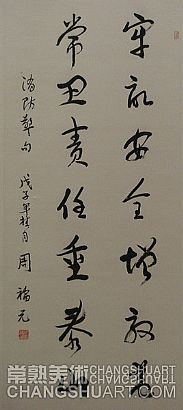 牢記安全增效益
常卫责任重泰山
消防警句
戊子年月周福元
常熟美術
CHANGSHUART.COM
CHANGSHUART.COM